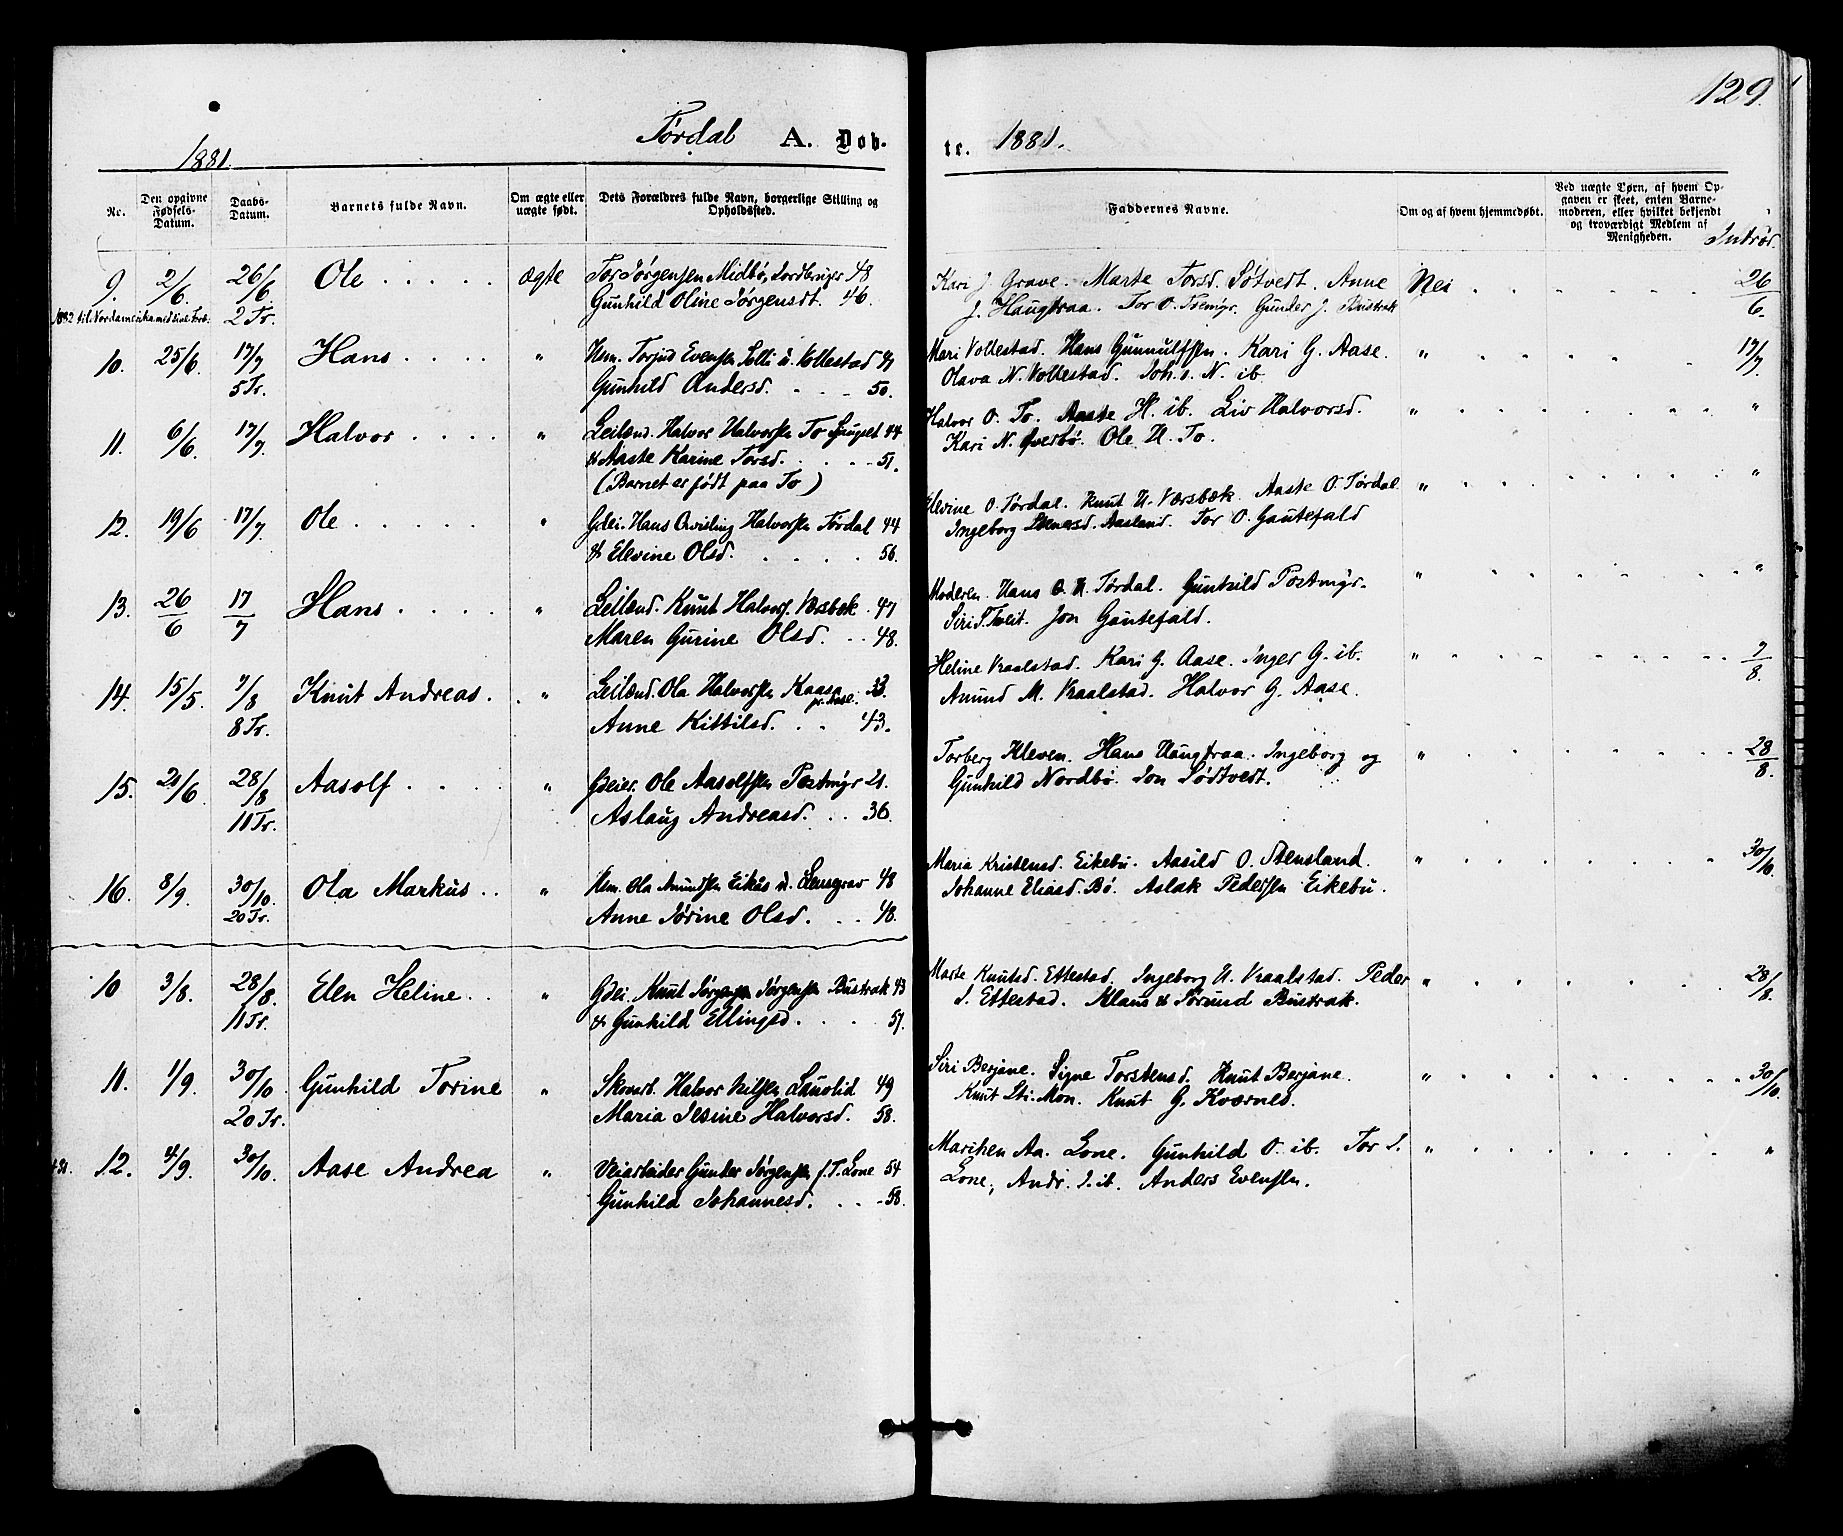 129.
Tørdal A. Døb-
te. 1881.
1881.
Nr.
Den opgivne Fødsels-Datum.
Daabs-Datum.
Barnets fulde Navn.
Om ægte eller uægte født.
Dets Forældres fulde Navn, borgerlige Stilling og Opholdssted.
Faddernes Navne.
Om og af hvem hjemmedøbt.
Ved uægte Børn, af hvem Opgaven er skeet, enten Barnemoderen, eller hvilket bekjendt og troværdigt Medlem af Menigheden.
Introd.
9. 2/6 26/6 Ole ægte Tor Jørgensen Midbø, Jordbruger 48
2 Tr. Gunhild Oline Jørgensdt. 46.
1882 til Nordamerika med sine For.
Kari J. Grave. Marte Torsd. Søtvedt. Anne Nei 26/6
J. Haugtraa. Tor O. Gunder J. Bustrak
10. 25/6 17/7 Hans " Hm. Torjus Evensen Solli u. Vollestad 41
5 Tr. Gunhild Andersd. 50.
Mari Vollestad. Hans Gunnulfsen. Kari G. Aase. " 17/7
Olava N. Vollestad. Joh. N. ib.
11. 6/6 17/7 Halvor " Leilænd. Halvor Halvorsen To 44
& Aaste Karine Torsd. 51.
(Barnet er født paa To)
Halvor O. To. Aaste H. ib. Liv Halvorsd. " "
Kari N. Ole H. To.
12. 19/6 17/7 Ole " Gdei. Hans Qvisling Halvorsen Tørdal 44
& Elevine Olsd. 56.
Elevine O. Tørdal. Knut H. Værsbæk. Aaste O. Tørdal " "
Ingeborg Aasland. Tor O. Gautefald
13. 26/6 17/7 Hans " Leilænd. Knut Halvors. Værsbæk 47
Maren Gurine Olsd. 48.
Moderen. Hans Q. H. Tørdal. Gunhild Postmyr. " "
Siri S. Tveit. Jon Gautefald.
14. 15/5 7/8 Knut Andreas. " Leilænd. Ola Halvorsen Kaasa pr. Aase. 33.
8 Tr. Anne Kittilsd. 43.
Heline Vraalstad. Kari G. Aase. Inger G. ib. " 7/8
Amund M. Vraalstad. Halvor G. Aase.
15. 21/6 28/8 Aasolf " Gdeier. Ole Aasolfsen Postmyr 21.
11 Tr. Aslaug Andreasd. 36.
Torberg Kleven. Hans Haugtraa. Ingeborg og " 28/8.
Gunhild Nordbø. Jon Sødtvedt.
16. 8/9 30/10. Ola Markus " Hm. Ola Amundsen Eikås u. 48
20 Tr. Anne Jørine Olsd. 48.
Maria Kristensd. Eikebu. Aasild O. Stensland. " 30/10.
Johanne Eliasd. Bø. Aslak Pedersen Eikebu.
10 3/8. 28/8. Elen Heline. " Gdei. Knut Jørgensen Bustrak 43
11 Tr. & Gunhild Ellingsd. 51.
Marte Knutsd. Ettestad. Ingeborg H. Vraalstad. Peder " 28/8.
S. Ettestad. Klaus & Jørund Bustrak.
11. 1/9. 30/10 Gunhild Torine " Skovarb. Halvor Nilsen Lauvlid 49
20 Tr. Maria Jesine Halvorsd. 58.
Siri Berjane. Signe Torstensd. Knut Berjane. " 30/10.
Knut Sti. Mon. Knut G. Kværnes.
12. 4/9. 30/10. Aase Andrea " Veiarbeider Gunder Jørgensen f. T. Lone 54
Gunhild Johannesd. 58.
Mariken Aa. Lone. Gunhild O. ib. Tor S. " "
Lone, Andr. S. ib. Anders Evensen.